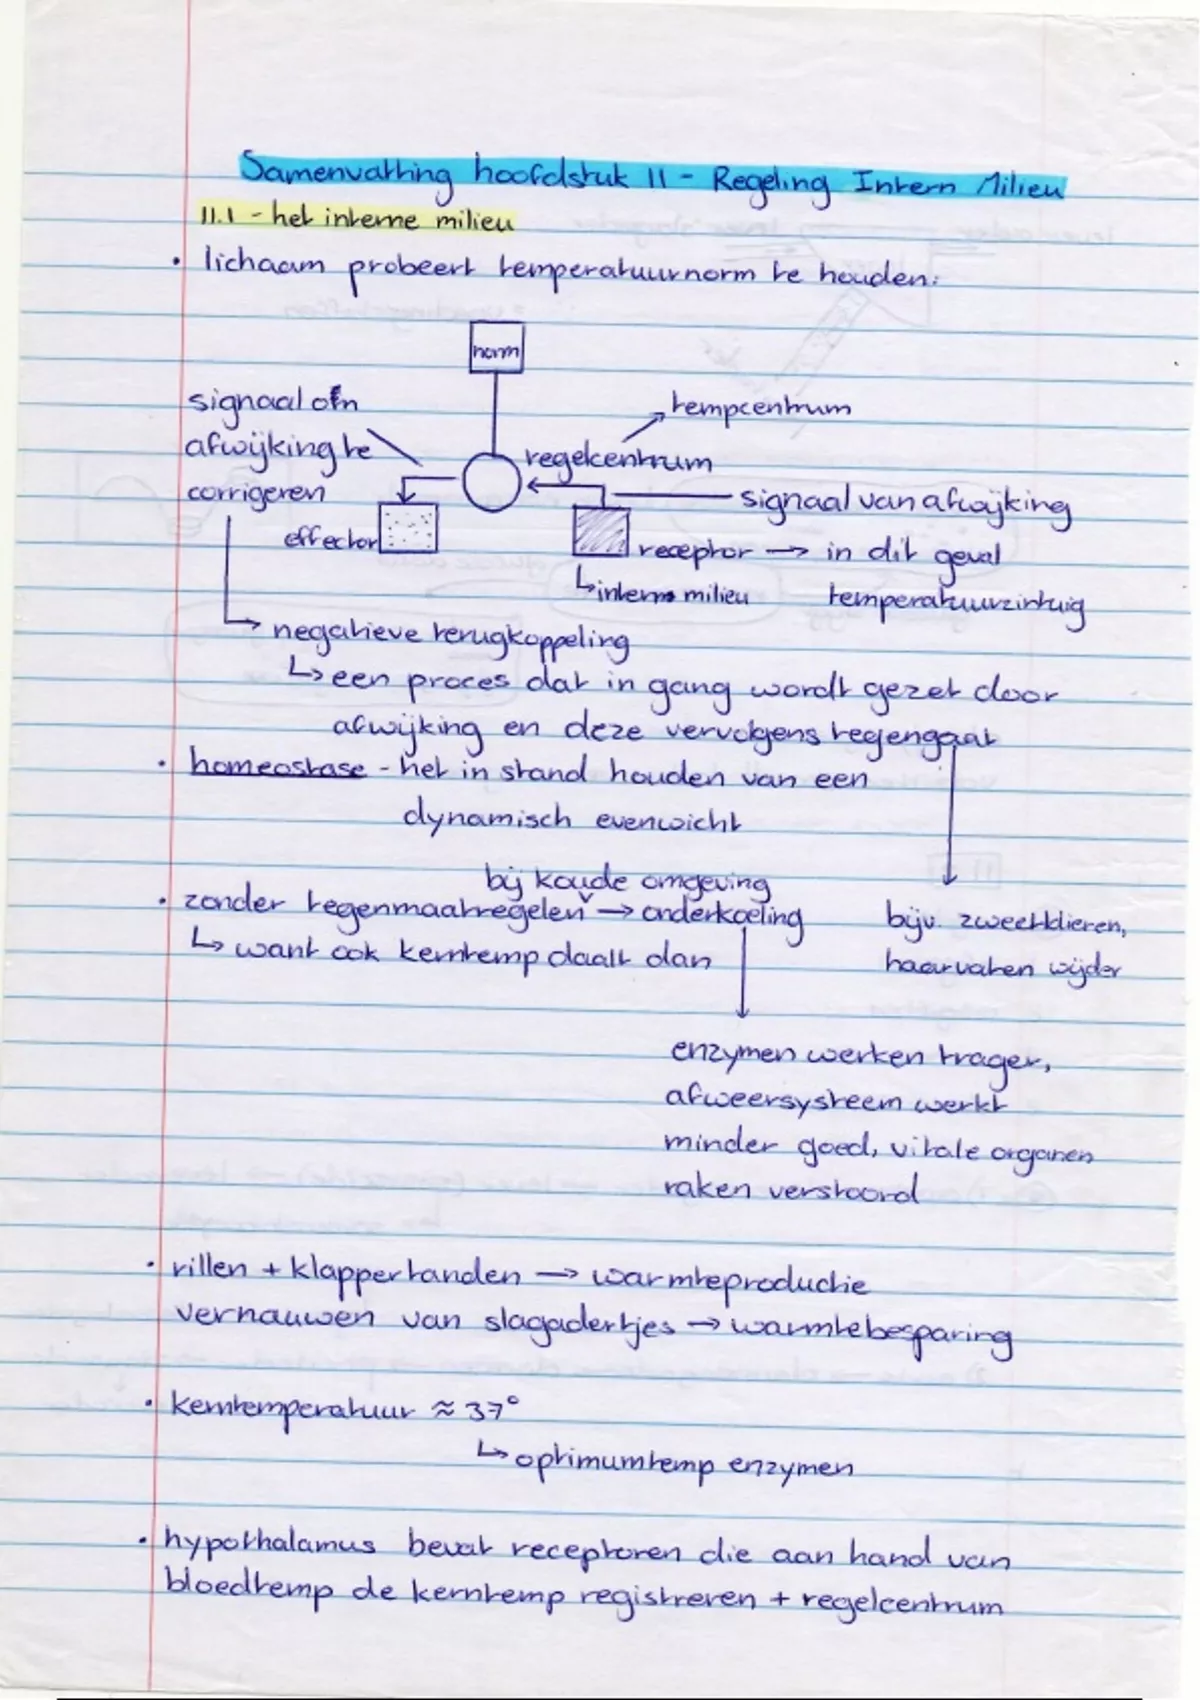 Samenvatting hoofdstuk 11 - Regeling Intern Milieu
11.1 - het interne milieu
• lichaam probeert temperatuurnorm te houden:
norm
signaal om
afwijking te
corrigeren
tempcentrum
regelcentrum
signaal van afwijking
effector
receptor → in dit geval
temperatuurzintuig
↳ interne milieu
negatieve terugkoppeling
↳ een proces dat in gang wordt gezet door
afwijking en deze vervolgens tegengaat
• homeostase - het in stand houden van een
dynamisch evenwicht
bij koude omgeving
• zonder tegenmaatregelen → onderkoeling
↳ want ook kerntemp daalt dan
bijv. zweetklieren,
haarvaten wijder
enzymen werken trager,
afweersysteem werkt
minder goed, vitale organen
raken verstoord
• rillen + klappertanden → warmteproductie
vernauwen van slagadertjes → warmtebesparing
• kerntemperatuur ≈ 37°
↳ optimumtemp enzymen
• hypothalamus bevat receptoren die aan hand van
bloedtemp de kerntemp registreren + regelcentrum